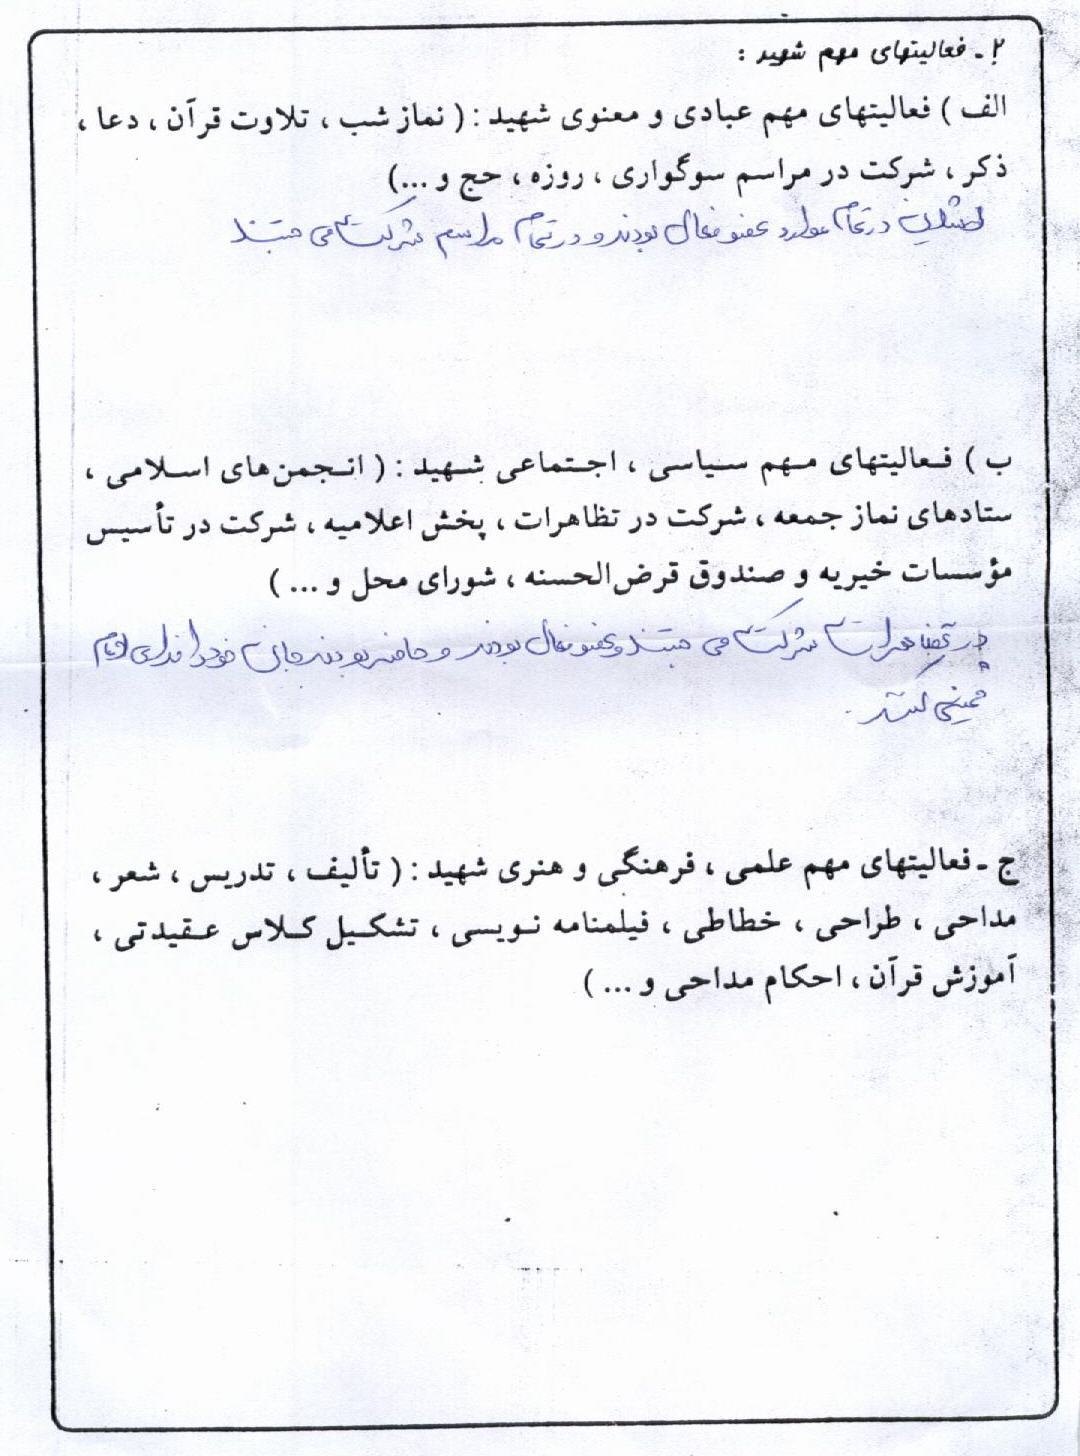 ۲ ـ فعالیتهای مهم شهید :
الف ) فعالیتهای مهم عبادی و معنوی شهید : ( نماز شب ، تلاوت قرآن ، دعا ،
ذکر ، شرکت در مراسم سوگواری ، روزه ، حج و ...)
ایشان در تمام موارد عضو فعال بودند و در تمام مراسم شرکت می جستند
ب ) فعالیتهای مهم سیاسی ، اجتماعی شهید : ( انجمن‌های اسلامی ،
ستادهای نماز جمعه ، شرکت در تظاهرات ، پخش اعلامیه ، شرکت در تأسیس
مؤسسات خیریه و صندوق قرض‌الحسنه ، شورای محل و ... )
در تظاهرات شرکت می جستند و عضو فعال بودند و حاضر بودند جان خود را فدای امام
خمینی کنند .
ج ـ فعالیتهای مهم علمی ، فرهنگی و هنری شهید : ( تألیف ، تدریس ، شعر ،
مداحی ، طراحی ، خطاطی ، فیلمنامه نویسی ، تشکیل کلاس عقیدتی ،
آموزش قرآن ، احکام مداحی و ... )